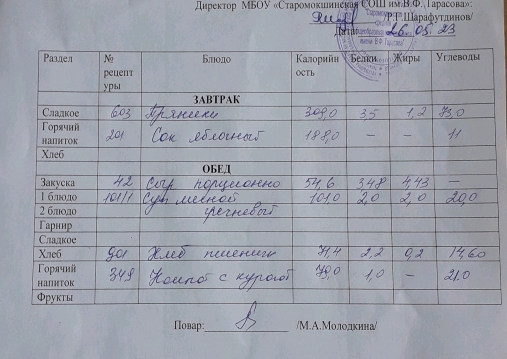 Директор МБОУ «Старомокшинская СОШ им.В.Ф. Тарасова»:
/Р.Г.Шарафутдинов/
Дата: 26.05.23
Раздел № рецептуры Блюдо Калорийность Белки Жиры Углеводы
ЗАВТРАК
Сладкое 603 Пряники 309,0 3,5 1,2 73,0
Горячий напиток 201 Сок яблочный 188,0 – – 11
Хлеб
ОБЕД
Закуска 42 Сыр порционно 54,6 3,48 4,43 –
1 блюдо 101/1 Суп молочной 101,0 2,0 2,0 20,0
2 блюдо гречневый
Гарнир
Сладкое
Хлеб 901 Хлеб пшеничн 71,4 2,2 0,2 14,60
Горячий напиток 349 Компот с кураго 79,0 1,0 – 21.0
Фрукты
Повар: /М.А.Молодкина/